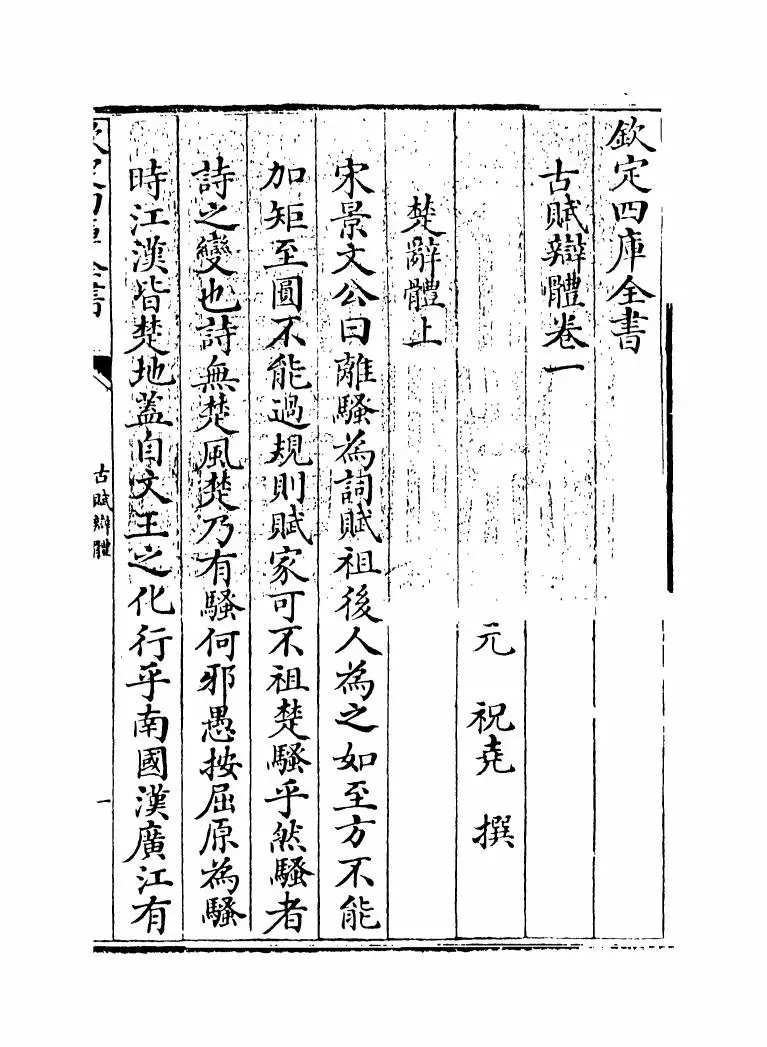 欽定四庫全書
古賦辯體卷一
元 祝堯 撰
楚辭體上
宋景文公曰離騷為詞賦祖後人為之如至方不能
加矩至圓不能過規則賦家可不祖楚騷乎然騷者
詩之變也詩無楚風楚乃有騷何邪愚按屈原為騷
時江漢皆楚地蓋自文王之化行乎南國漢廣江有
古賦辯體
一